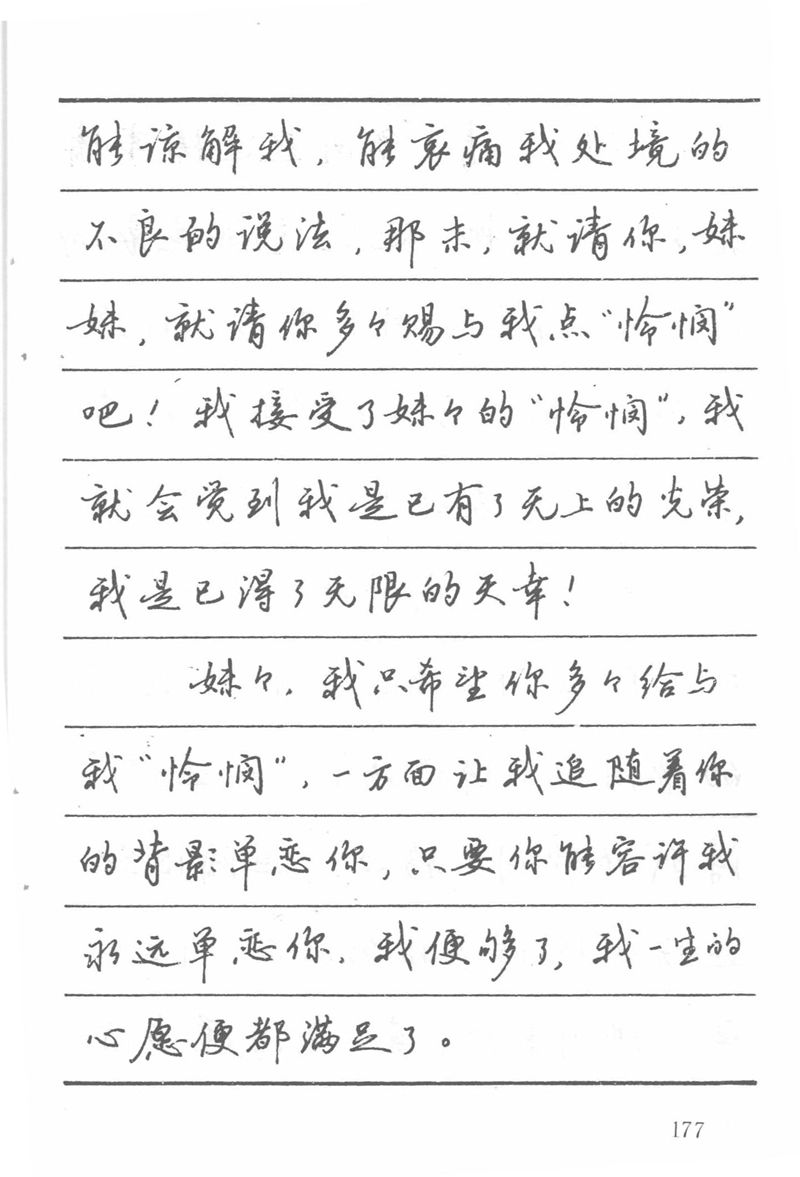 能谅解我，能哀痛我处境的
不良的说法，那末，就请你，妹
妹，就请你多々赐与我点“怜悯”
吧！我接受了妹々的“怜悯”，我
就会觉到我是已有了无上的光荣，
我是已得了无限的天幸！
妹々，我只希望你多々给与
我“怜悯”，一方面让我追随着你
的背影单恋你，只要你能容许我
永远单恋你，我便够了，我一生的
心愿便都满足了。
177